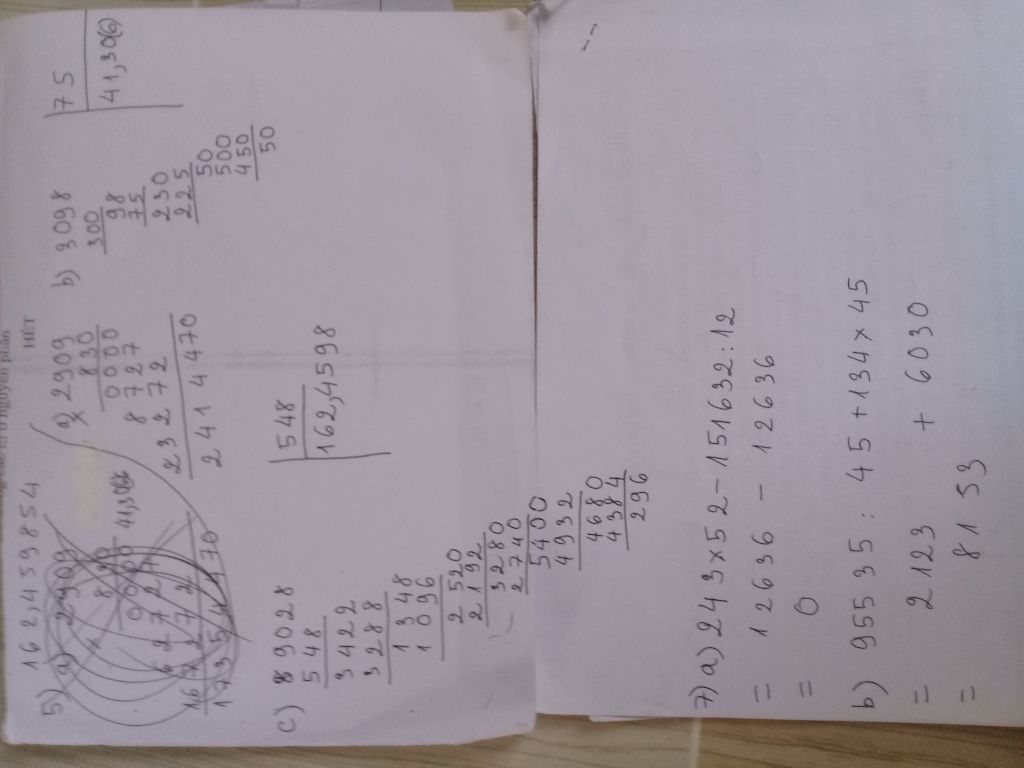 HẾT
5) 162,4539854
a) 2909
× 830
0000
8727
23272
2414470
b) 3098 75
300 41,30(6)
98
75
230
225
50
500
450
50
c) 89028 548
548 162,4598
3422
3288
1348
1096
2520
2192
3280
2740
5400
4932
4680
4384
296
7) a) 243 × 52 - 151632 : 12
= 12636 - 12636
= 0
b) 95535 : 45 + 134 × 45
= 2123 + 6030
= 8153